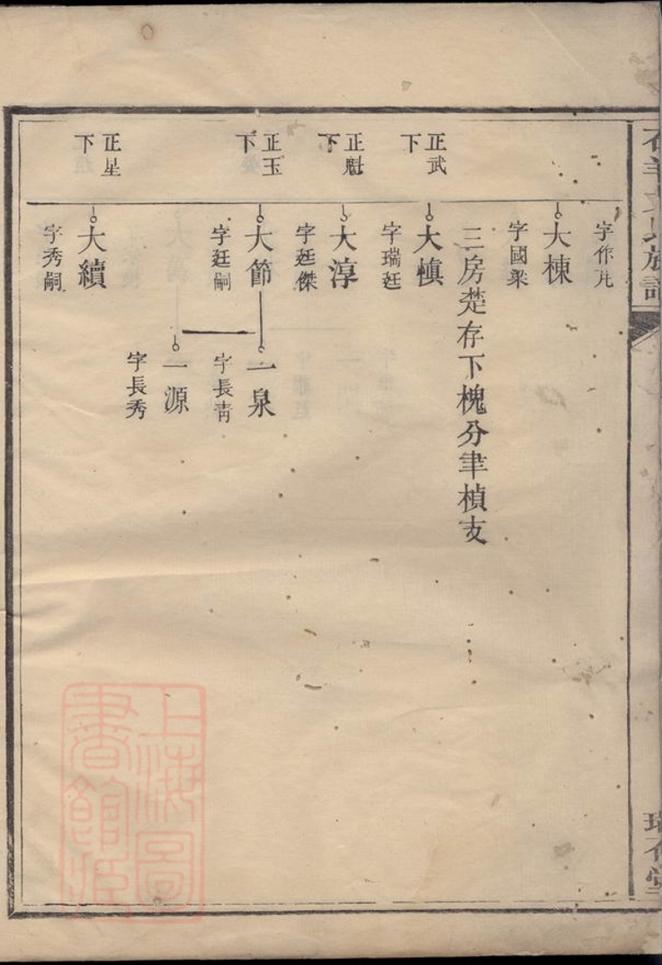 族譜
字作
大棟
字國梁
三房楚存下槐分聿楨支
正武下
大槙
字瑞廷
正魁下
大淳
字廷傑
正玉下
大節
字廷嗣
一泉
字長青
一源
字長秀
正星下
大續
字秀嗣
上海圖
書館藏